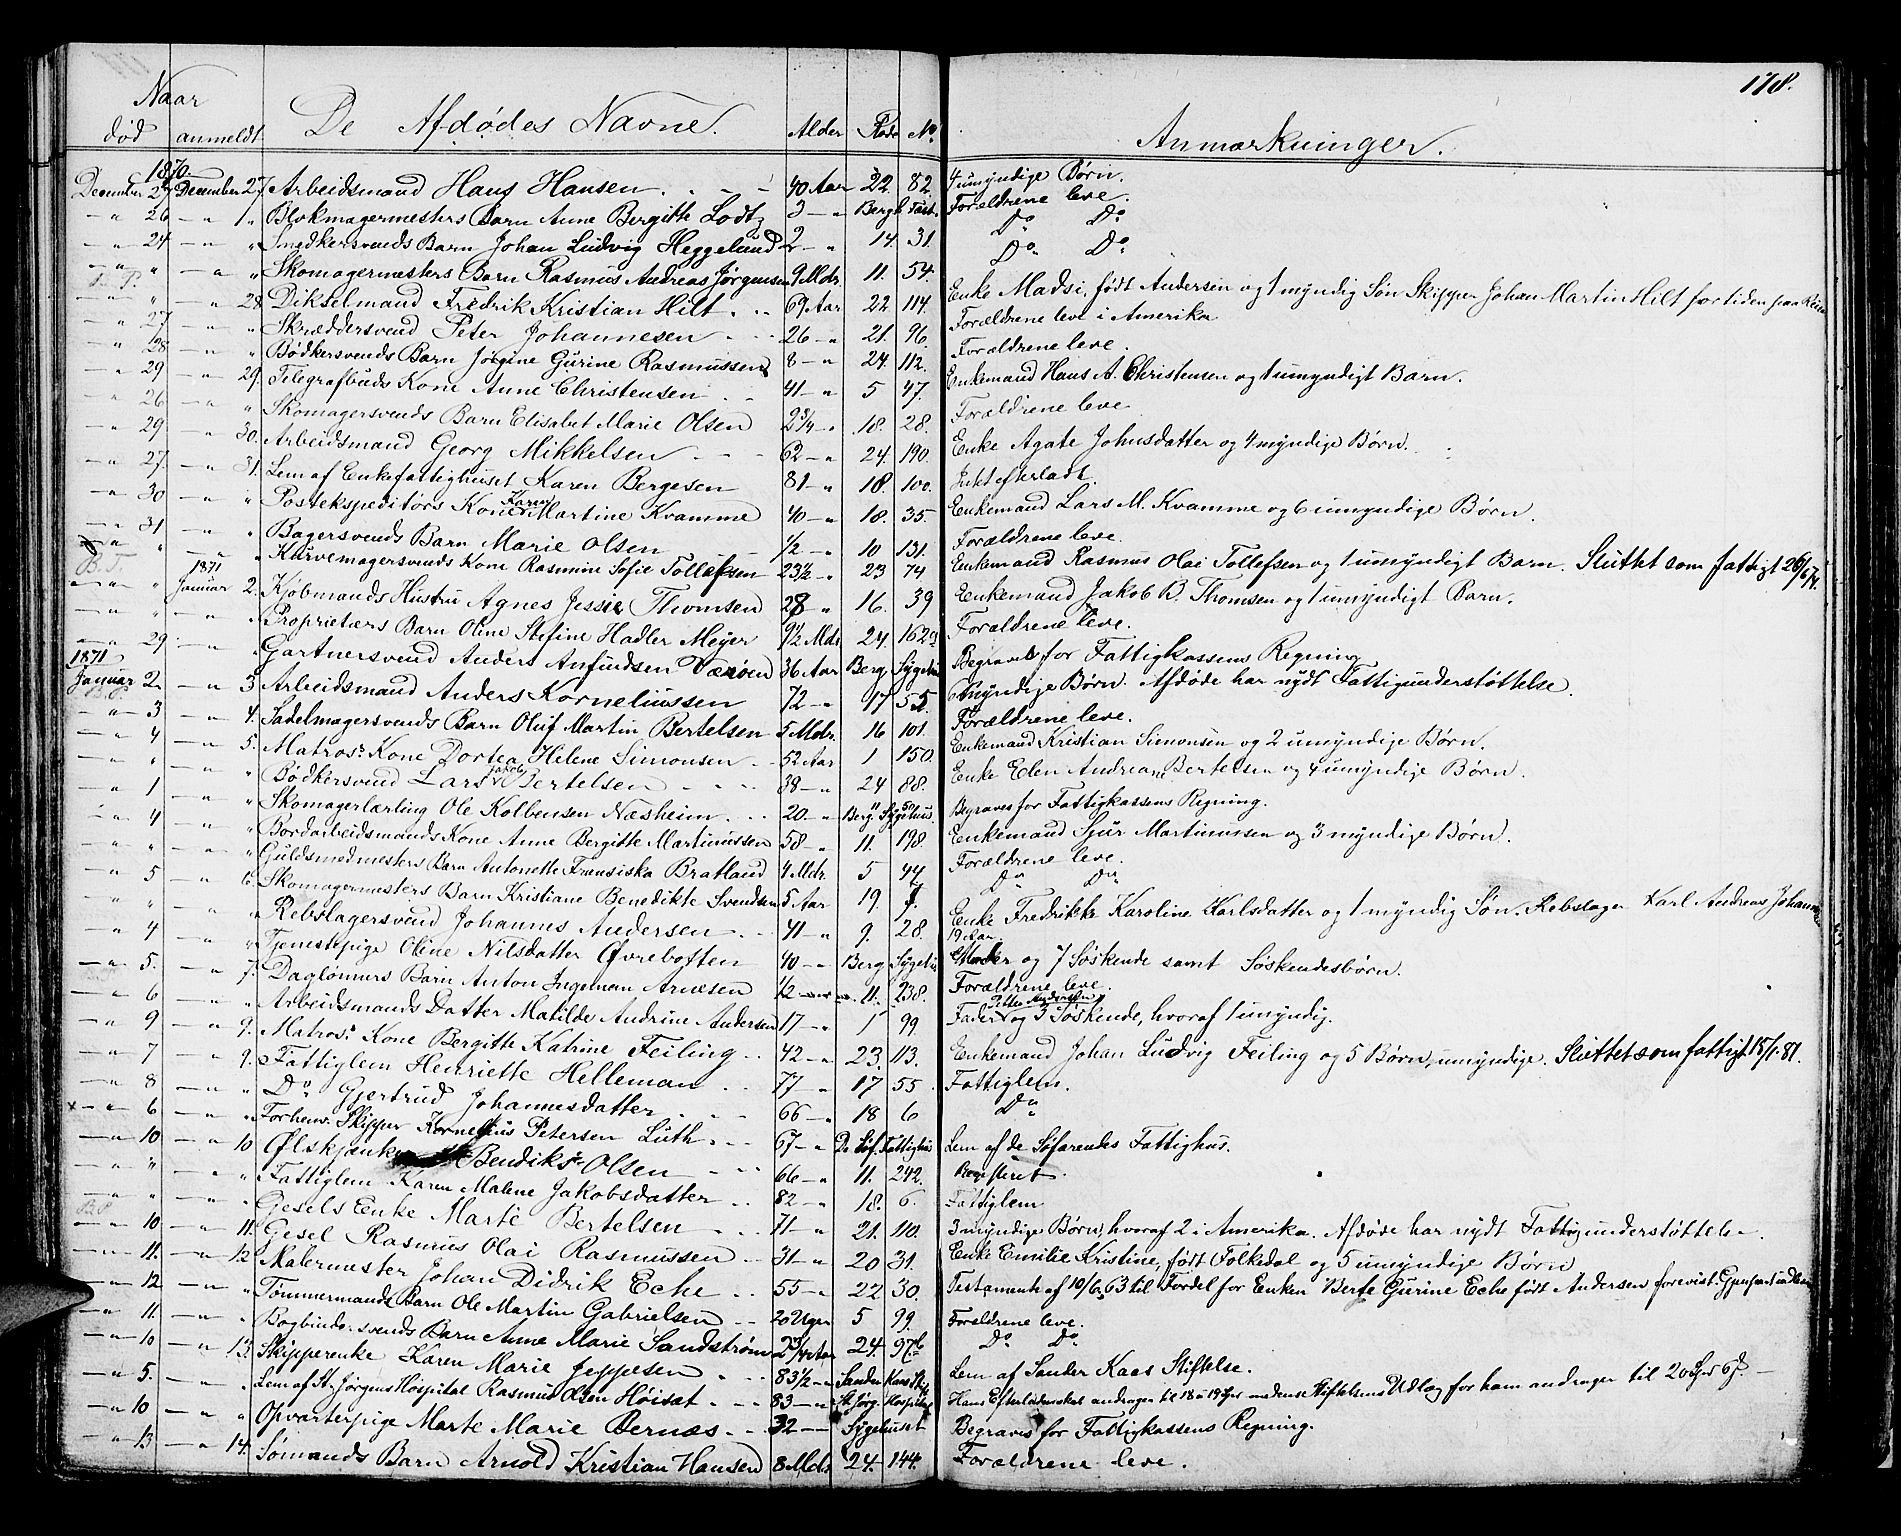 178.
Naar
død anmeldt De Afdødes Navne. Alder Rode No. Anmærkninger.
1870
December 27 December 27. Arbeidsmand Hans Hansen 40 Aar 22 82 4 umyndige Børn.
" 26 " " Blokmagermesters Barn Anne Bergitte Lodtz 3 " Forældrene leve.
" 24 " " Snedkersvends Barn Johan Ludvig Heggelund 2 " 14. 31. Do Do
" " " " Skomagermesters Barn Rasmus Andreas Jørgensen 9 Mdr. 11. 54. Do Do
" " " 28. Fredrik Kristian Hilt 69 Aar 22 114. Enke Madsi, født Andersen og 1 myndig Søn Skipper Johan Martin Hilt for tiden paa Reise
" 27 " " Skræddersvend Peter Johannesen 26 " 21. 96. Forældrene leve i Amerika
" 28 " " Bødkersvends Barn Jørgine Gurine Rasmussen 8 " 24. 112. Forældrene leve.
" 29 " 29. Telegrafbuds Kone Anne Christensen 41 " 5 47. Enkemand Hans A. Christensen og 1 umyndigt Barn.
" 26 " " Skomagersvends Barn Elisabet Marie Olsen 2 3/4 " 18. 28. Forældrene leve
" 29 " 30. Arbeidsmand Georg Mikkelsen 62 " 24. 190. Enke Agate Johnsdatter og 4 myndige Børn.
" 27 " 31. Lem af Enkefattighuset Karen Bergesen 81 " 18. 100. Intet efterladt.
" 30 " " Postekspeditørs Kone Karen Martine Kvamme 40 " 18. 35. Enkemand Lars M. Kvamme og 6 umyndige Børn.
" 31 " " Bagersvends Barn Marie Olsen 1/2 " 10 131. Forældrene leve.
" " " " Kurvemagersvends Kone Rasmine Sofie Tollefsen 23 1/2 " 23 74 Enkemand Rasmus Olai Tollefsen og 1 umyndigt Barn. Sluttet som fattigt
1871
" " Januar 2. Kjøbmands Hustru Agnes Jessie Thomsen 28 " 16. 39 Enkemand Jakob B. Thomsen og 1 umyndigt Barn.
" " " " Proprietærs Barn Oline Stefine Hadler Meyer 9 1/2 Mdr. 24. 162 Forældrene leve.
" 29. " " Gartnersvend Anders Anfindsen 36 Aar Berg. Sygehus Begraves for Fattigkassens Regning
1871
Januar 2. " 3 Arbeidsmand Anders Korneliussen 72 " 17 55. 6 myndige Børn. Afdøde har nydt Fattigunderstøttelse.
" 3 " 4. Sadelmagersvends Barn Oluf Martin Bertelsen 5 Mdr. 16 101. Forældrene leve.
" 4 " 5. Matros. Kone Dortea Helene Simonsen 52 Aar 1 150. Enkemand Kristian Simonsen og 2 umyndige Børn.
" " " " Bødkersvend Lars Jakob Bertelsen 38 " 24 88. Enke Elen Andrea Bertelsen og 4 umyndige Børn.
" 1 " " Skomagerlærling Ole Kolbensen Næsheim 20 " Berg. Sygehus Begraves for Fattigkassens Regning.
" 4 " " Bordarbeidsmands Kone Anne Bergitte Martinussen 58 " 11. 198. Enkemand Sjur Martinussen og 3 myndige Børn.
" " " " Guldsmedmesters Barn Antonette Fransiska Bratland 4 Mdr. 5 44 Forældrene leve.
" 5 " 6. Skomagermesters Barn Kristiane Benedikte Svendsen 5 Aar 19. Do Do
" " " " Rebslagersvend Johannes Andersen 41 " 9. 28. Enke Fredrikke Karoline Karlsdatter og 1 myndig Søn. Rebslager Karl Andreas
19 Aar.
" 4 " " Tjenestepige Oline Nilsdatter Øvrebotten 40 " Berg Sygehus Moder og 7 Søskende samt Søskendesbørn.
" 5. " 7. Daglønners Barn Anton Ingeman Arnesen 1/2 " 11. 238. Forældrene leve.
" 6 " " Arbeidsmands Datter Matilde Andrine Andersen 17 " 1 99 Fader og 3 Søskende, hvoraf 1 umyndig.
" 9 " 9. Matros. Kone Bergitte Katrine Feiling 42 " 23. 113. Enkemand Johan Ludvig Feiling og 5 Børn, umyndige. Sluttet som fattigt 18/1. 81.
" 7 " 9. Fattiglem Henriette Helleman 77 " 17 55 Fattiglem.
" 8 " " Do Gjertrud Johannesdatter 66 " 18 6 Do
" 6 " " Forhenv. Skipper Kornelius Petersen Lüth 67 " De Søf. Fattighus Lem af de Søfarendes Fattighus.
" 10 " 10 Ølskjænker Bendiks Olsen 66 " 11. 242. Registeret
" " " " Fattiglem Karen Malene Jakobsdatter 82 " 18. 6. Fattiglem
" " " " Gesels Enke Marte Bertelsen 71 " 21. 110. 3 myndige Børn, hvoraf 2 i Amerika. Afdøde har nydt Fattigunderstøttelse.
" 10 " 11. Gesel Rasmus Olai Rasmussen 31 " 20 31. Enke Emilie Kristine, født Folkedal og 5 umyndige Børn
" 11. " 12 Malermester Johan Didrik Eche 55 " 22 30. Testamente af 10/6 63 til Fordel for Enken Berte Gurine Eche født Andersen forevist.
" 12 " " Tømmermands Barn Ole Martin Gabrielsen 20 Uger 5 99. Forældrene leve.
" 11. " " Bogbindersvends Barn Anne Marie Sandstrøm 2 3/4 Aar 24. 97 b Do Do
" 10 " 13. Skipperenke Karen Marie Jeppesen 83 1/2 " Sander Kaas Stift Lem af Sander Kaas Stiftelse.
" 5. " " Lem af St. Jørgens Hospital Rasmus Olsen Høisæt 83 " St. Jørg. Hospital Hans Efterladenskab andrager til 18 a 19 Spd medens Stiftelsens Udlæg for ham andrager til 20 Spd
" 10 " " Opvarterpige Marte Marie Bernæs 32 " Sygehuset Begraves for Fattigkassens Regning.
" 13 " 14. Sømands Barn Arnold Kristian Hansen 8 Mdr 24. 144. Forældrene leve.